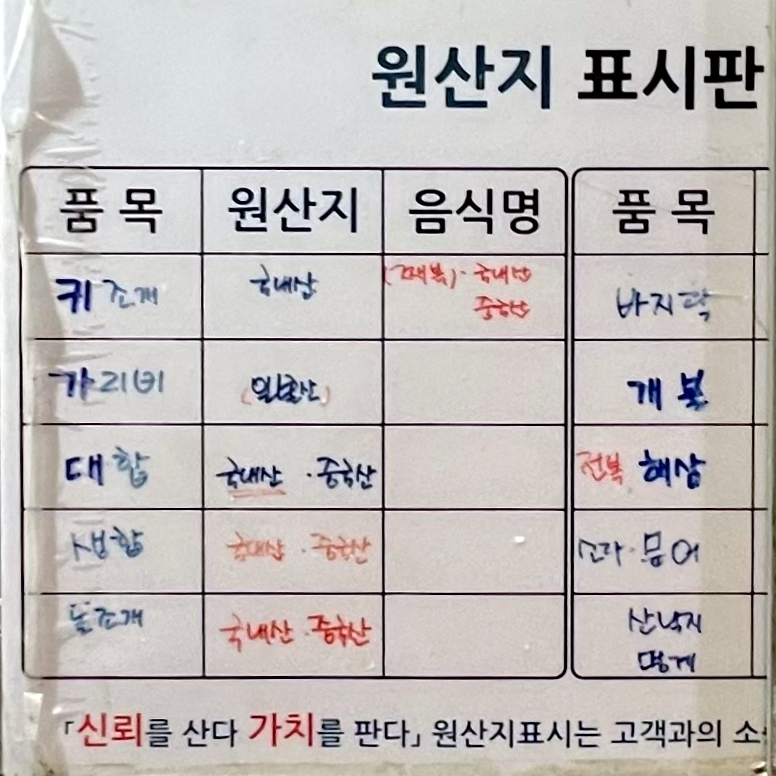 원산지 표시판
품목 원산지 음식명 품목
키조개 국내산 (개불)·국내산 바지락
중국산
가리비 (일본산) 개불
대합 국내산 · 중국산 전복 해삼
생합 국내산 · 중국산 소라·문어
돌조개 국내산·중국산 산낙지
멍게
「신뢰를 산다 가치를 판다」 원산지표시는 고객과의 소